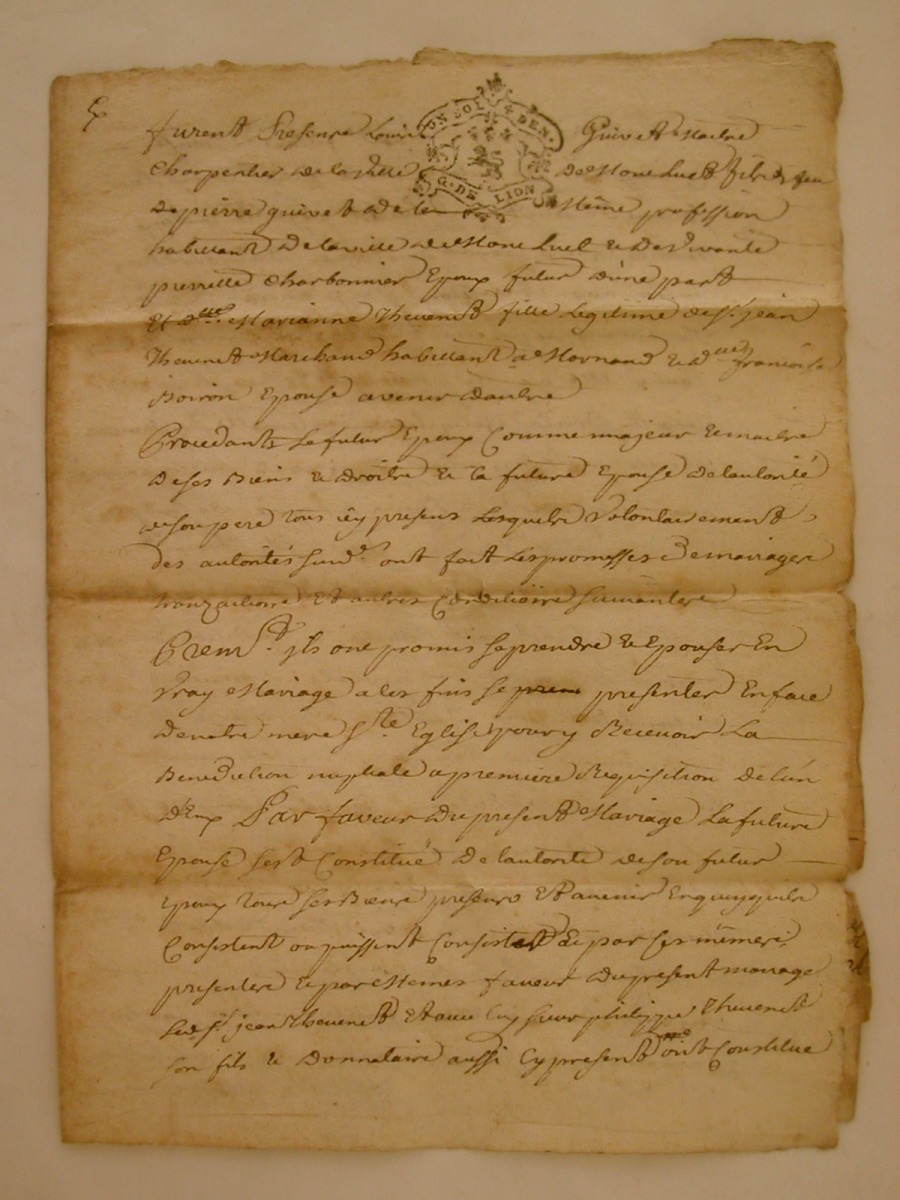 furent Presents Louis Guivet Maitre
UN SOL 4 DEN.
G. DE LION
Charpentier de la ville de Montluel fils de feu
de pierre guivet de la Même profession
habittant de la ville de Mont Luel & de vivante
pierrette Charbonnier Epoux futur d'une part
Et dlle Marianne Thevenet fille Legitime de Sr jean
Thevenet Marchand habittant a Mornand & dlle françoise
Boiron Epouse avenir d'autre
Procedants Le futur Epoux Comme majeur & maitre
de ses Biens & droits & la future Epouse de l'autorité
de son pere tous icy presens Lesquels Volontairement
des autorités susd. ont fait Les promesses de mariage
tranzactions Et autres Conditions suivantes
Premt. ils ont promis se prendre & Epouser En
vray Mariage a ces fins se presenter En face
de notre mere Ste Eglise pour y Recevoir La
Benediction nuptiale a premiere Requisition de l'un
d'Eux Par faveur du present Mariage La future
Epouse s'est Constitué de l'autorité de son futur
Epoux tous ses Biens presens Et avenir En quoy qu'ils
Consistent ou puissent Consister & par ses mêmes
presentes & par Memes faveur du present mariage
Led. Sr jean Thevenet Et avec luy sieur philippe Thevenet
son fils & Donnataire aussi Cy present ont Constitué